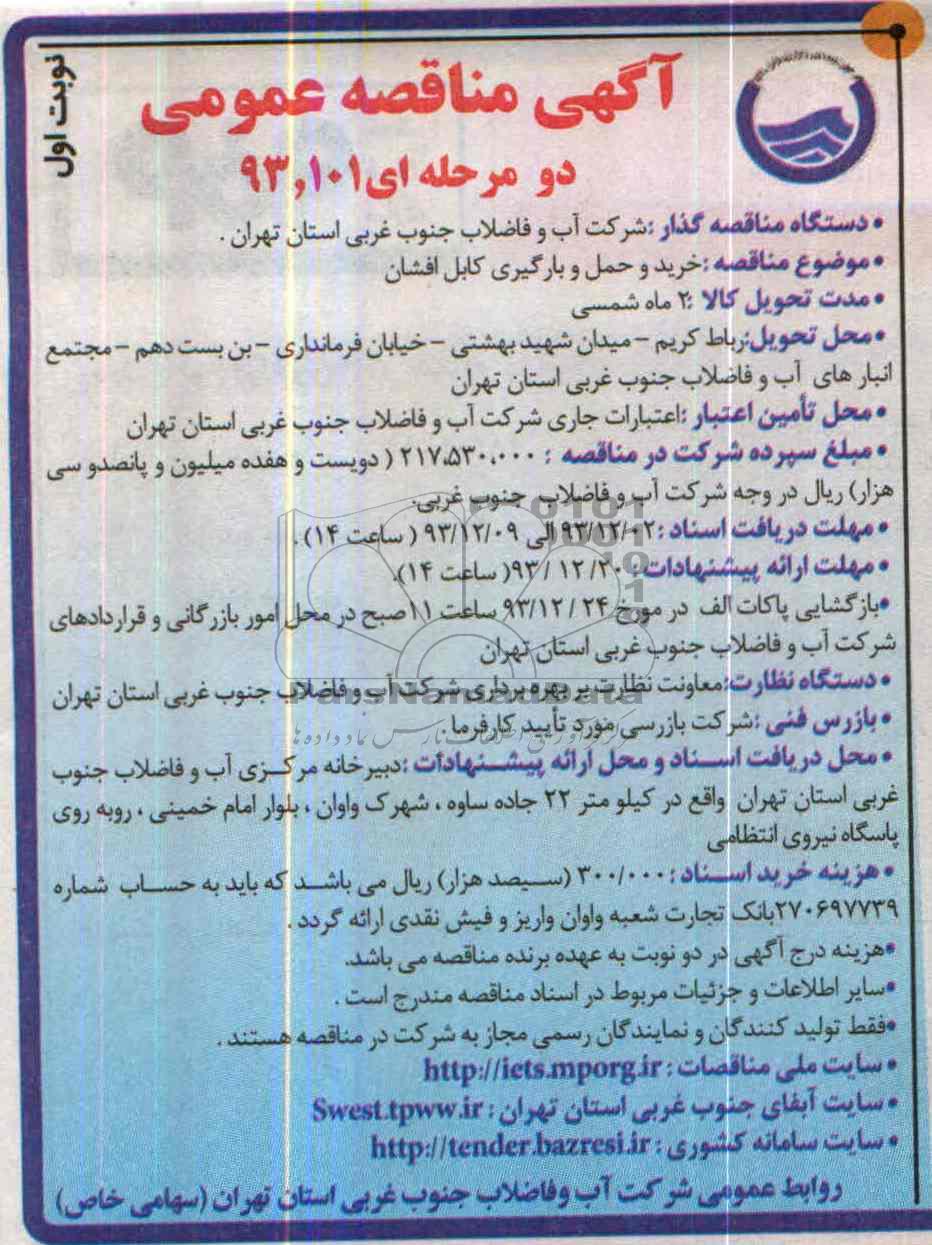 نوبت اول
آگهی مناقصه عمومی
دو مرحله ای ۹۳,۱۰۱
• دستگاه مناقصه گذار :شرکت آب و فاضلاب جنوب غربی استان تهران .
• موضوع مناقصه :خرید و حمل و بارگیری کابل افشان
• مدت تحویل کالا :۲ ماه شمسی
• محل تحویل:رباط کریم – میدان شهید بهشتی – خیابان فرمانداری – بن بست دهم – مجتمع
انبار های آب و فاضلاب جنوب غربی استان تهران
• محل تأمین اعتبار :اعتبارات جاری شرکت آب و فاضلاب جنوب غربی استان تهران
• مبلغ سپرده شرکت در مناقصه : ۲۱۷،۵۳۰،۰۰۰ ( دویست و هفده میلیون و پانصدو سی
هزار) ریال در وجه شرکت آب و فاضلاب جنوب غربی.
• مهلت دریافت اسناد :۹۳/۱۲/۰۲ الی ۹۳/۱۲/۰۹ ( ساعت ۱۴) .
• مهلت ارائه پیشنهادات : ۹۳/ ۱۲ /۲۰( ساعت ۱۴).
•بازگشایی پاکات الف در مورخ ۲۴ / ۹۳/۱۲ ساعت ۱۱صبح در محل امور بازرگانی و قراردادهای
شرکت آب و فاضلاب جنوب غربی استان تهران
• دستگاه نظارت:معاونت نظارت بر بهره برداری شرکت آب و فاضلاب جنوب غربی استان تهران
ParsNamadData
• بازرس فنی :شرکت بازرسی مورد تأیید کارفرما
• محل دریافت اسناد و محل ارائه پیشنهادات :دبیرخانه مرکزی آب و فاضلاب جنوب
غربی استان تهران واقع در کیلو متر ۲۲ جاده ساوه ، شهرک واوان ، بلوار امام خمینی ، روبه روی
پاسگاه نیروی انتظامی
• هزینه خرید اسناد : ۳۰۰/۰۰۰ (سیصد هزار) ریال می باشد که باید به حساب شماره
۲۷۰۶۹۷۷۳۹بانک تجارت شعبه واوان واریز و فیش نقدی ارائه گردد .
•هزینه درج آگهی در دو نوبت به عهده برنده مناقصه می باشد.
•سایر اطلاعات و جزئیات مربوط در اسناد مناقصه مندرج است .
•فقط تولید کنندگان و نمایندگان رسمی مجاز به شرکت در مناقصه هستند .
• سایت ملی مناقصات : http://iets.mporg.ir
• سایت آبفای جنوب غربی استان تهران : Swest.tpww.ir
• سایت سامانه کشوری : http://tender.bazresi.ir
روابط عمومی شرکت آب وفاضلاب جنوب غربی استان تهران (سهامی خاص)